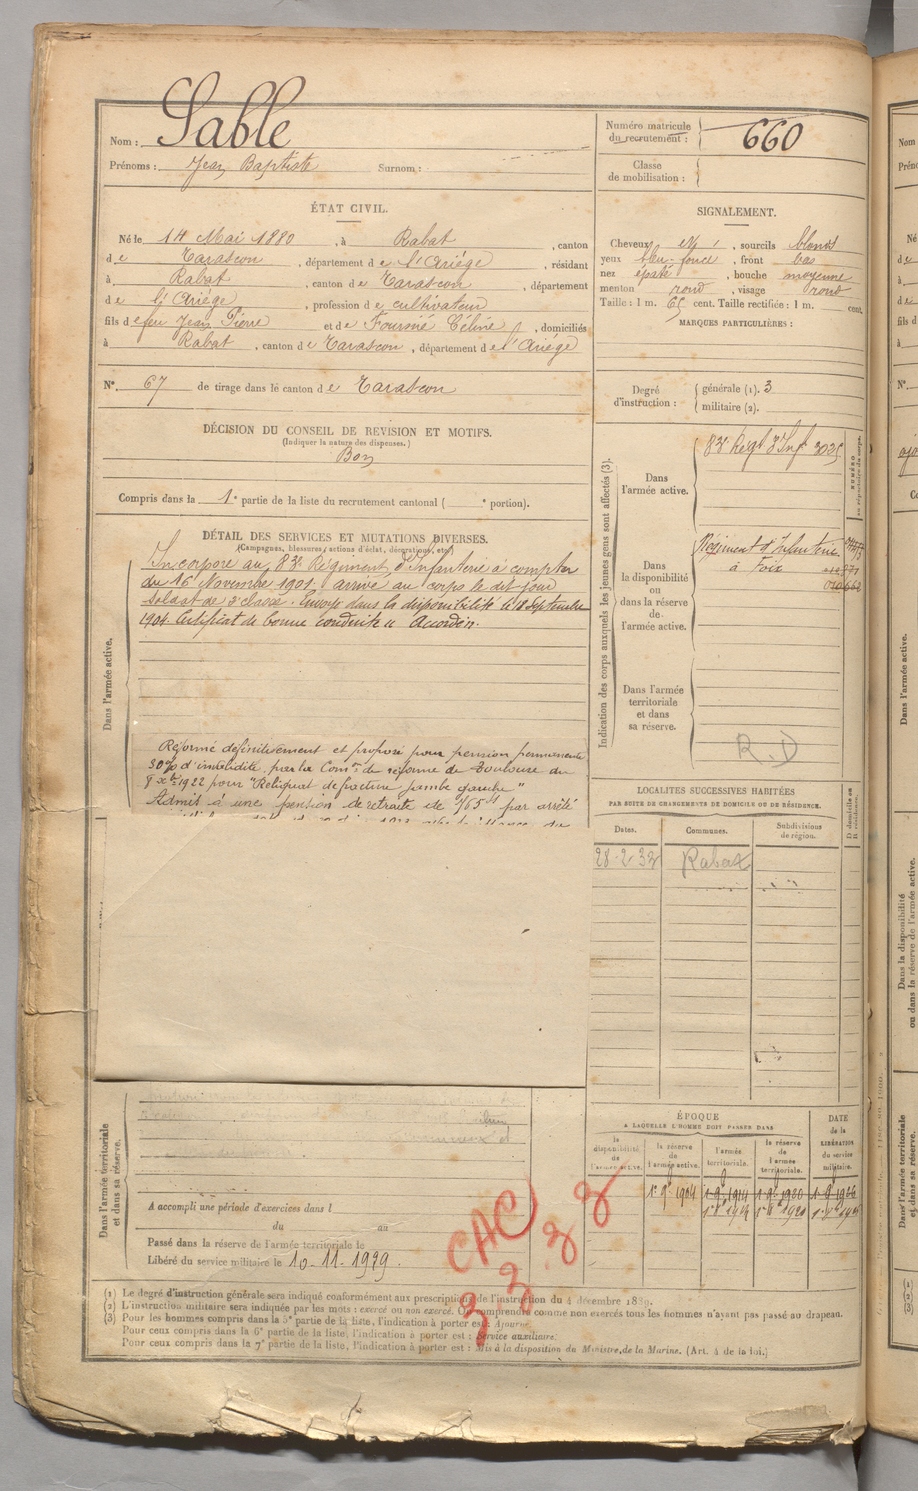 Nom : Sable
Prénoms : Jean Baptiste Surnom :
ÉTAT CIVIL.
Né le 14 Mai 1880, à Rabat, canton
de Tarascon, département de l'Ariège, résidant
à Rabat, canton de Tarascon, département
de l'Ariège, profession de cultivateur
fils de feu Jean Pierre et de Fournié Céline, domiciliés
à Rabat, canton de Tarascon, département de l'Ariège
N° 67 de tirage dans le canton de Tarascon
DÉCISION DU CONSEIL DE REVISION ET MOTIFS.
(Indiquer la nature des dispenses.)
Bon
Compris dans la 1e partie de la liste du recrutement cantonal ( e portion).
DÉTAIL DES SERVICES ET MUTATIONS DIVERSES.
(Campagnes, blessures, actions d'éclat, décorations, etc.)
Dans l'armée active.
Incorporé au 83e Régiment d'Infanterie à compter
du 16 Novembre 1901 arrivé au corps le dit jour
soldat de 2e classe. Envoyé dans la disponibilité le 18 Septembre
1904. Certificat de bonne conduite "Accordé".
Réformé définitivement et proposé pour pension permanente
30% d'invalidité par la Comon de réforme de Toulouse du
1922 pour "Reliquat de fracture jambe gauche"
Admis à une pension de retraite de par arrêté
Dans l'armée territoriale
et dans sa réserve.
A accompli une période d'exercices dans l
du au
Passé dans la réserve de l'armée territoriale le
Libéré du service militaire le 10-11-1929.
Numéro matricule
du recrutement : 660
Classe
de mobilisation :
SIGNALEMENT.
Cheveux , sourcils blonds
yeux bleu foncé, front bas
nez épaté, bouche moyenne
menton rond, visage rond
Taille : 1 m. 65 cent. Taille rectifiée : 1 m. cent.
MARQUES PARTICULIÈRES :
Degré
d'instruction :
générale (1). 3
militaire (2).
Indication des corps auxquels les jeunes gens sont affectés (3).
NUMÉRO
Dans
l'armée active.
83e Regt d'Inf 3035
Dans
la disponibilité
ou
dans la réserve
de
l'armée active.
Régiment d'Infanterie
à Foix
Dans l'armée
territoriale
et dans
sa réserve.
R.D
LOCALITÉS SUCCESSIVES HABITÉES
PAR SUITE DE CHANGEMENTS DE DOMICILE OU DE RÉSIDENCE.
Dates. Communes. Subdivisions
de région. D domicile ou
R résidence.
28-2-32 Rabat
ÉPOQUE
A LAQUELLE L'HOMME DOIT PASSER DANS
DATE
de la
LIBÉRATION
du service
militaire.
la
disponibilité
de
l'armée active.
la réserve
de
l'armée active.
l'armée
territoriale.
la réserve
de
l'armée
territoriale.
CAC
3 3 3 3
(1) Le degré d'instruction générale sera indiqué conformément aux prescriptions de l'instruction du 4 décembre 1889.
(2) L'instruction militaire sera indiquée par les mots : exercé ou non exercé. On comprendra comme non exercés tous les hommes n'ayant pas passé au drapeau.
(3) Pour les hommes compris dans la 5e partie de la liste, l'indication à porter est : Ajourné.
Pour ceux compris dans la 6e partie de la liste, l'indication à porter est : Service auxiliaire.
Pour ceux compris dans la 7e partie de la liste, l'indication à porter est : Mis à la disposition du Ministre de la Marine. (Art. 4 de la loi.)